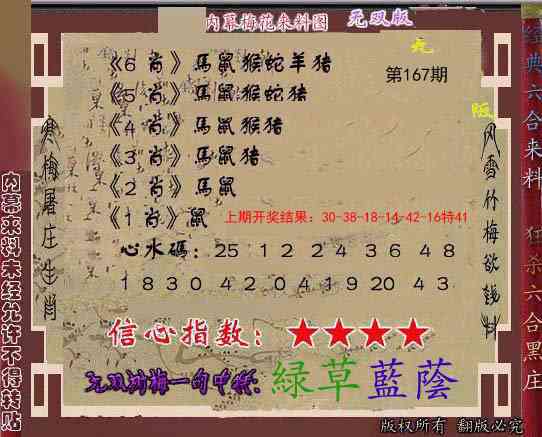 内幕梅花来料图 无双版
《6 肖》馬鼠猴蛇羊猪
第167期
《5 肖》馬鼠猴蛇猪
《4 肖》馬鼠猴猪
《3 肖》馬鼠猪
《2 肖》馬鼠
《1 肖》鼠
上期开奖结果：30-38-18-14-42-16特41
心水碼：25 12 24 36 48
18 30 42 04 19 20 43
信心指数：★★★★
无双鸿梅一句中特:緑草藍蔭
版权所有 翻版必究
寒梅屠庄生肖
风雪竹梅欲钱料
内幕来料未经允许不得转贴
经典六合来料 狂杀六合黑庄